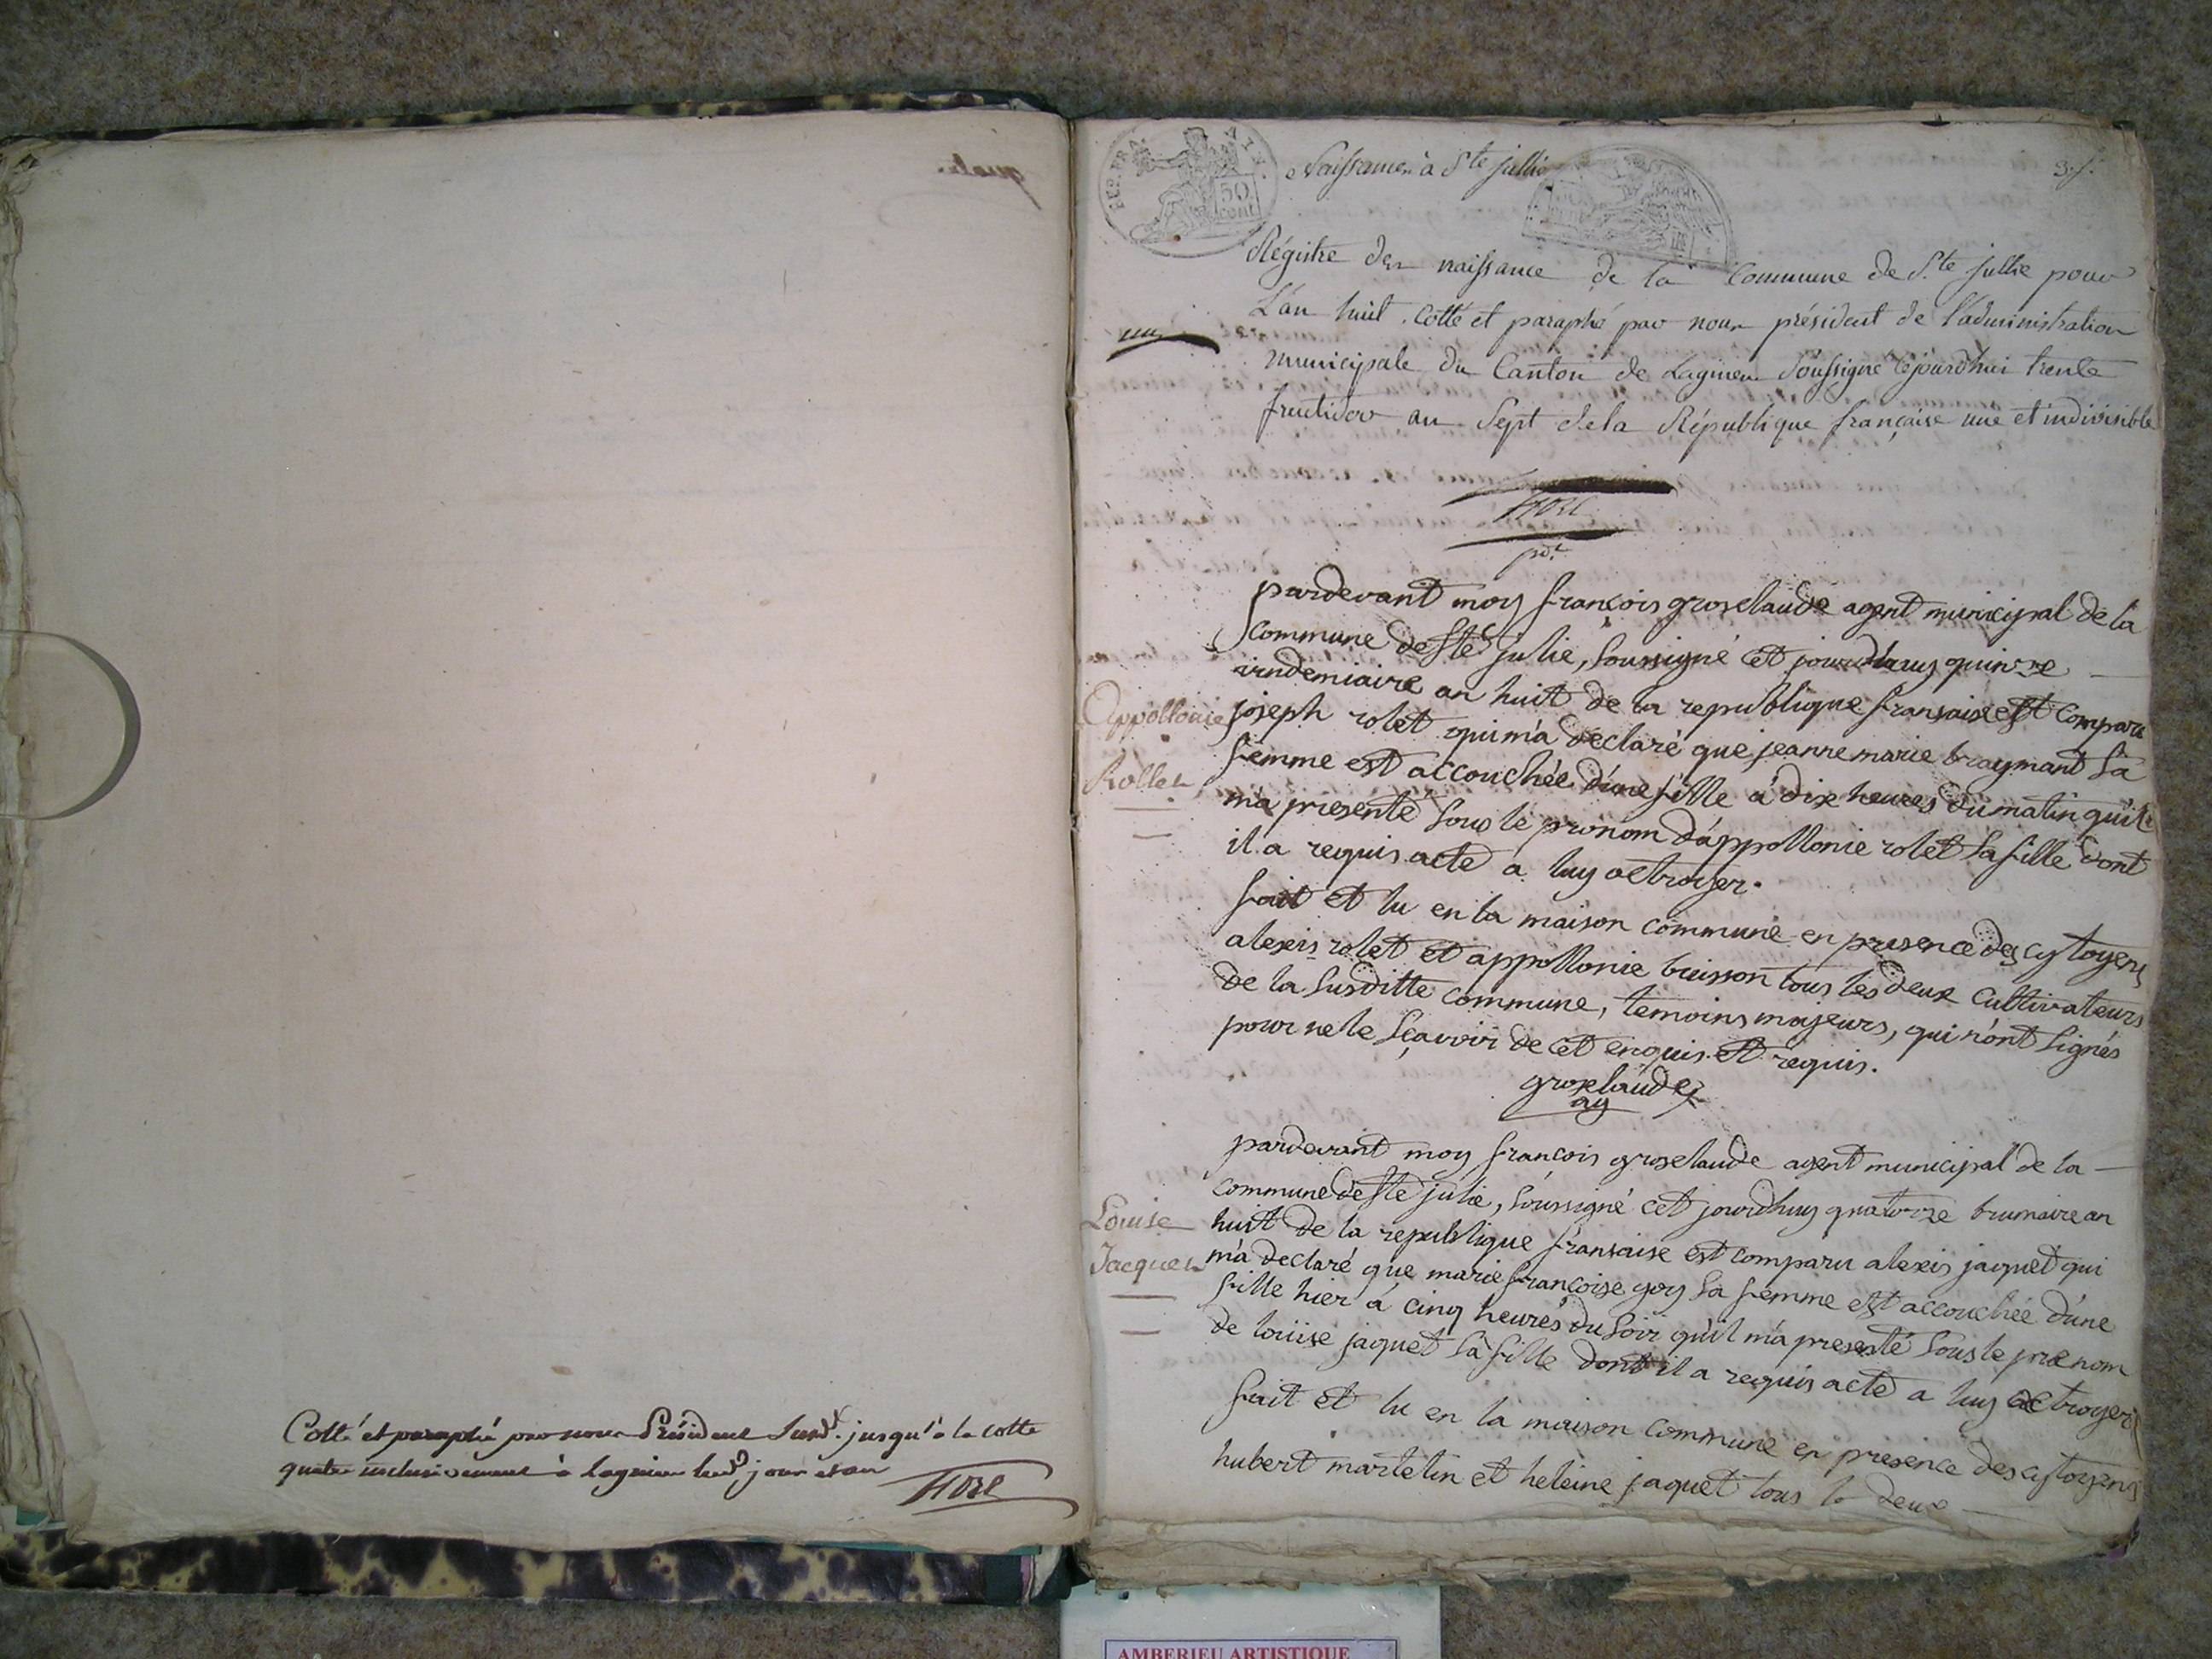 Cotté et paraphé par nous Président susd.t jusqu'à la cotte
quatre inclusivement à lagnieu lesd jour et an
REP. FRA.
50
cent
Naissances à Ste jullie
Régistre des naissance de la Commune de S.te jullie pour
L'an huit. Cotté et paraphé par nous président de l'administration
un
municipale du Canton de Lagnieu Soussigné cejourd'hui trente
fructidor an Sept de la République française une et indivisible
pdt
pardevant moy françois groselaude agent municipal de la
commune de Ste julie, soussigné cet jourdhuy quinze
vindemiaire an huit de la republique fransaise est comparu
Appollonie
Rollet
joseph rolet qui m'a declaré que jeanne marie braymant sa
femme est accouchée d'une fille a dix heures du matin qu'il
m'a presenté sous le pronom d'appollonie rolet sa fille dont
il a requis acte a luy octroyer.
fait et lu en la maison commune en presence des cytoyens
alexis rolet et appollonie buisson tous les deux cultivateurs
de la susditte commune, temoins majeurs, qui n'ont signés
pour ne le sçavoir de cet enquis et requis.
groselaude
ag
pardevant moy francois groselaude agent municipal de la
commune de Ste julie, soussigné cet jourdhuy quatorze brumaire an
Louise
Jacquet
huit de la republique fransaise est comparu alexis jaquet qui
m'a declaré que marie françoise goy sa femme est accouchée d'une
fille hier a cinq heures du soir qu'il m'a presenté sous le prenom
de loüise jaquet sa fille dont il a requis acte a luy octroyer
fait et lu en la maison commune en presence des cytoyens
hubert martelin et heleine jaquet tous le deux
AMBERIEU ARTISTIQUE